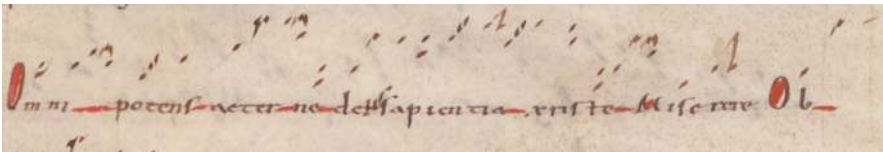 Omni potens aeterne dei sapientia xriste Miserere Ob